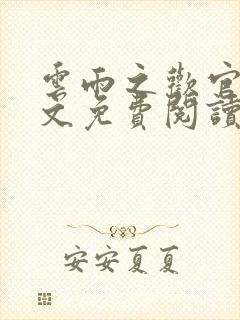 雲雨之歡官
文免費閱讀
安安夏夏